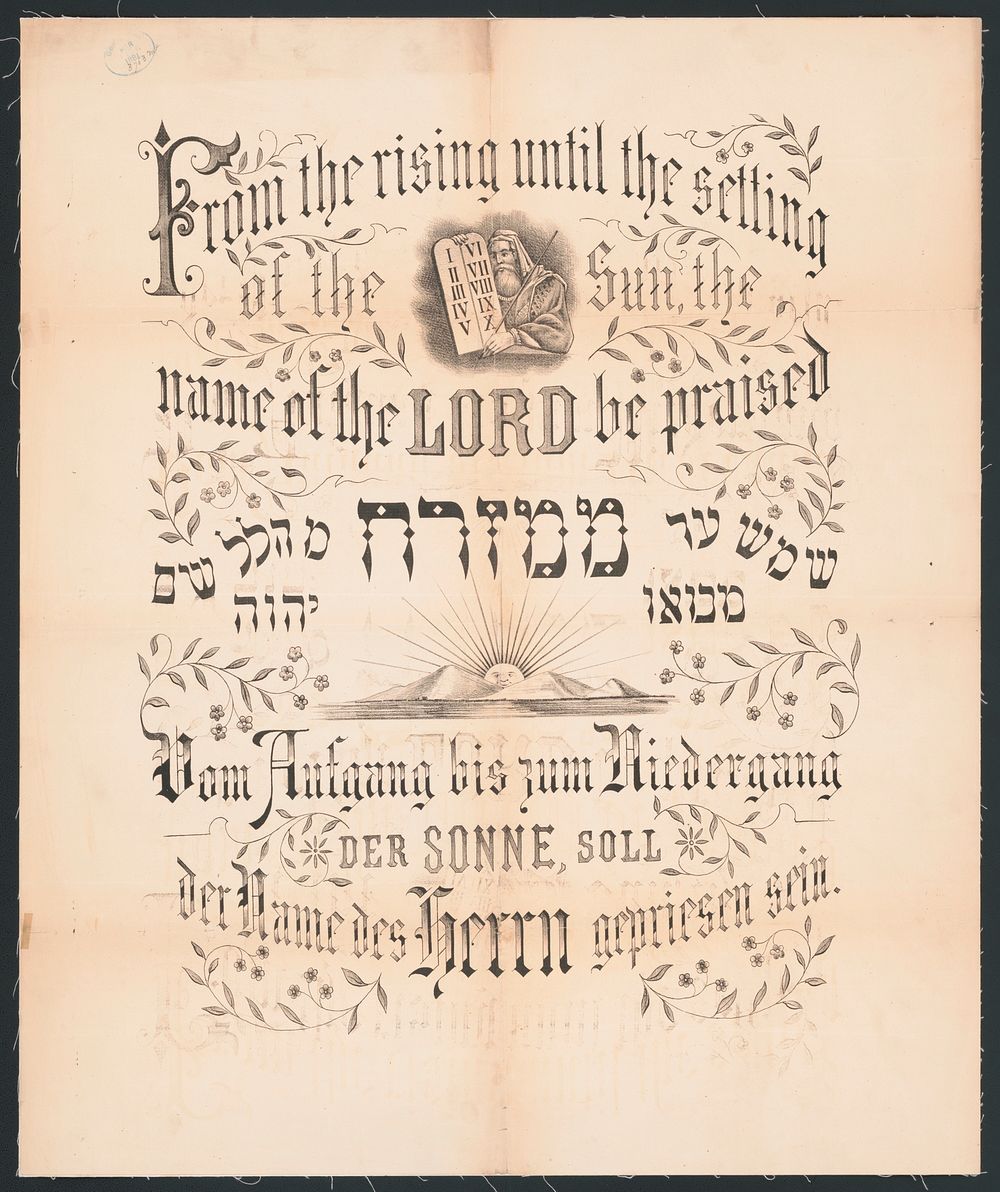 From the rising until the setting
I VI
II VII
III VIII
IV IX
V X
of the Sun, the
name of the LORD be praised
שמש עד ממזרח מהלל שם
מבואו יהוה
Vom Aufgang bis zum Niedergang
DER SONNE, SOLL
der Name des Herrn gepriesen sein.